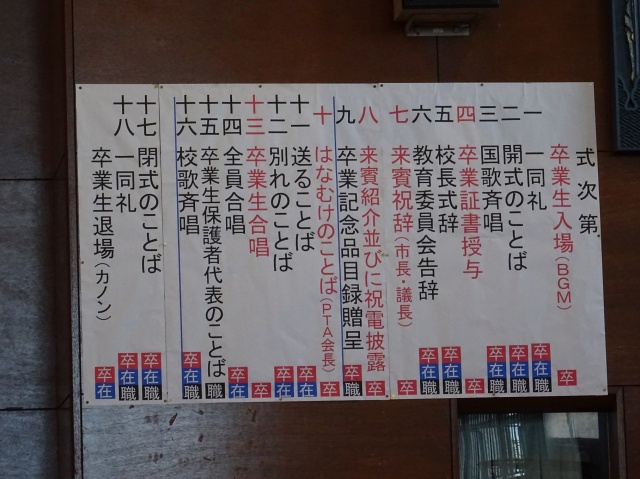 式次第
卒業生入場(BGM) 卒
一 一同礼 卒在職
二 開式のことば 卒在職
三 国歌斉唱 卒在職
四 卒業証書授与 卒
五 校長式辞 卒在職
六 教育委員会告辞 卒在職
七 来賓祝辞(市長・議長) 卒
八 来賓紹介並びに祝電披露 卒
九 卒業記念品目録贈呈 卒職
十 はなむけのことば(PTA会長) 卒
十一 送ることば 卒在
十二 別れのことば 卒在
十三 卒業生合唱 卒
十四 全員合唱 卒在
十五 卒業生保護者代表のことば 職
十六 校歌斉唱 卒在職
十七 閉式のことば 卒在職
十八 一同礼 卒在職
卒業生退場(カノン) 卒在